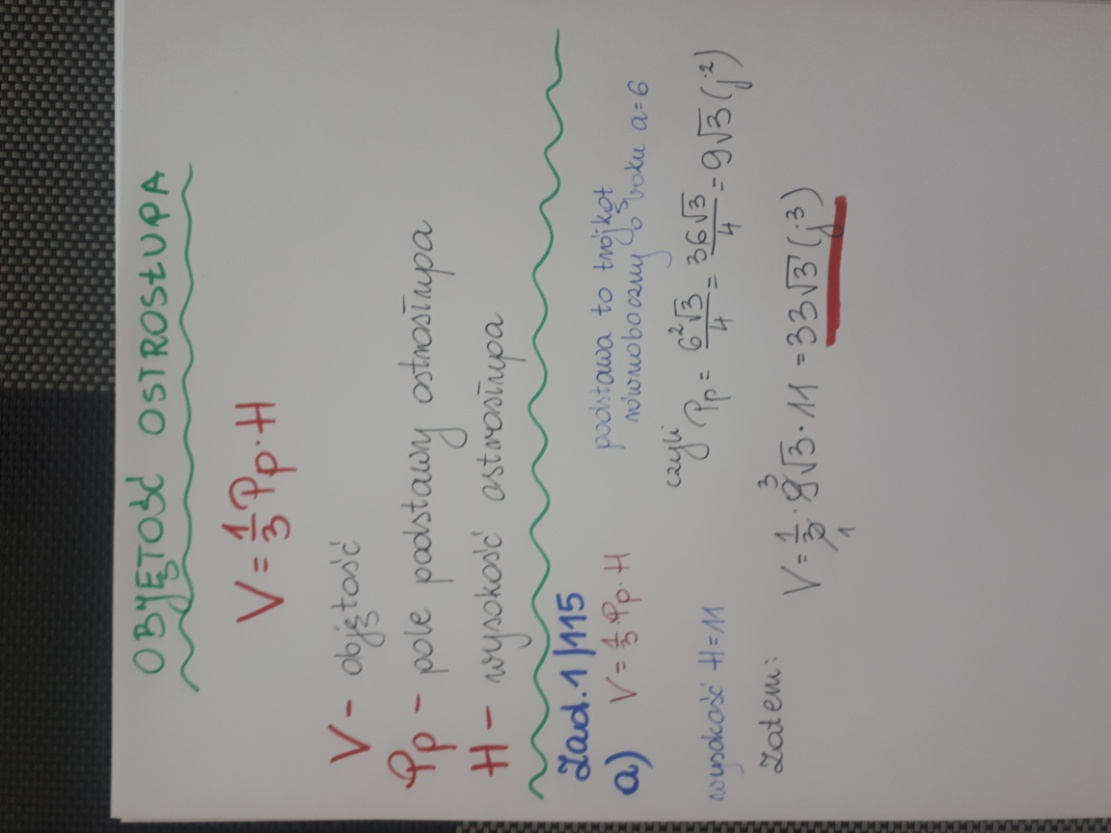 OBJĘTOŚĆ OSTROSŁUPA
V = 1/3 Pp · H
V - objętość
Pp - pole podstawy ostrosłupa
H - wysokość ostrosłupa
Zad. 1/115
a) V = 1/3 · Pp · H
podstawa to trójkąt
równoboczny o boku a=6
wysokość H=11
czyli Pp = 6²√3/4 = 36√3/4 = 9√3 (j²)
Zatem:
V = 1/3 · 9√3 · 11 = 33√3 (j³)
3
1